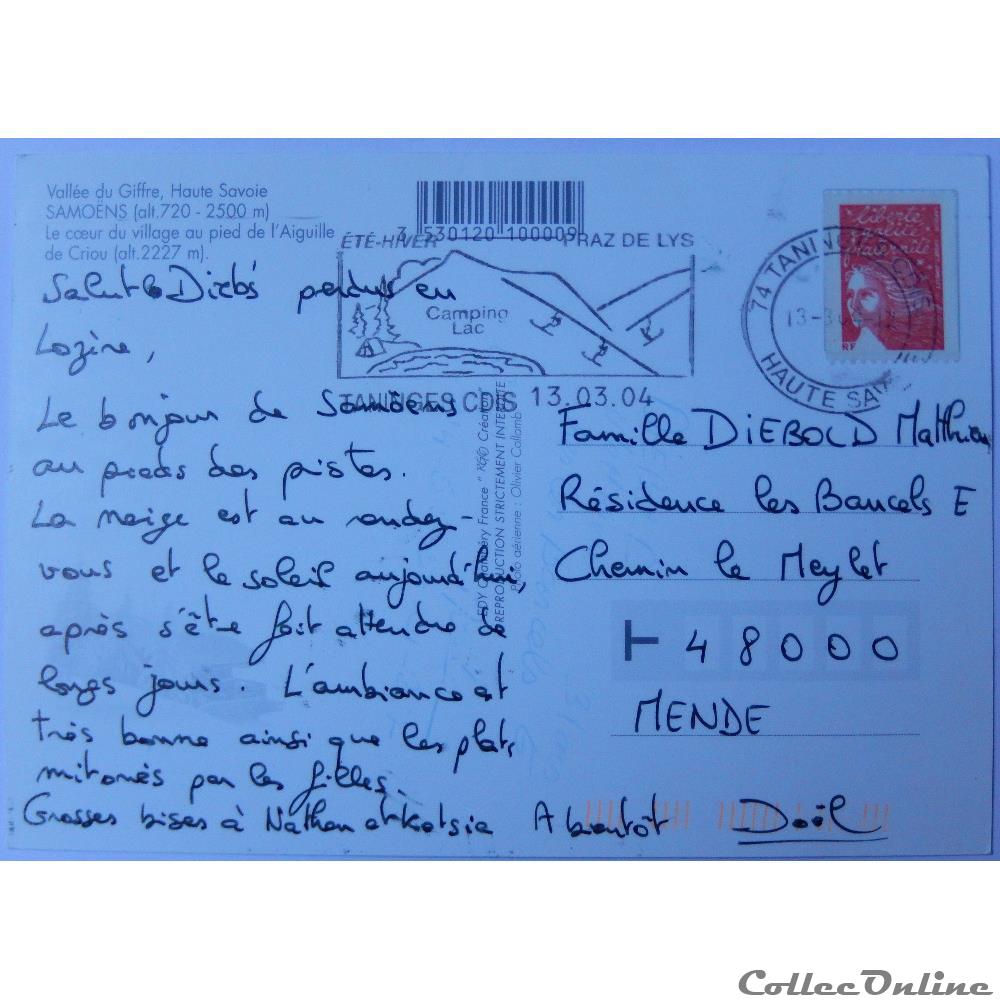 Vallée du Giffre, Haute Savoie
SAMOËNS (alt.720 - 2500 m)
Le cœur du village au pied de l'Aiguille
de Criou (alt.2227 m).
3 530120 100009
ÉTÉ-HIVER PRAZ DE LYS
Camping
Lac
TANINGES CDIS 13.03.04
74 TANINGES CDIS
13-3
HAUTE SAV
liberté
égalité
fraternité
RF
Salut Diebs perdus en
Lozère,
Le bonjour de Samoëns
au pieds des pistes.
La neige est au rendez-
vous et le soleil aujourd'hui,
après s'être fait attendre de
longs jours. L'ambiance est
très bonne ainsi que les plats
mitonés par les filles.
Grosses bises à Nathan et Ketsia A bientôt Doël
EDY Chambéry France " Création"
REPRODUCTION STRICTEMENT INTERDITE
Photo aérienne : Olivier Collomb
Famille DIEBOLD Matthieu
Résidence les Bancels E
Chemin le Meylet
48000
MENDE
CollecOnline